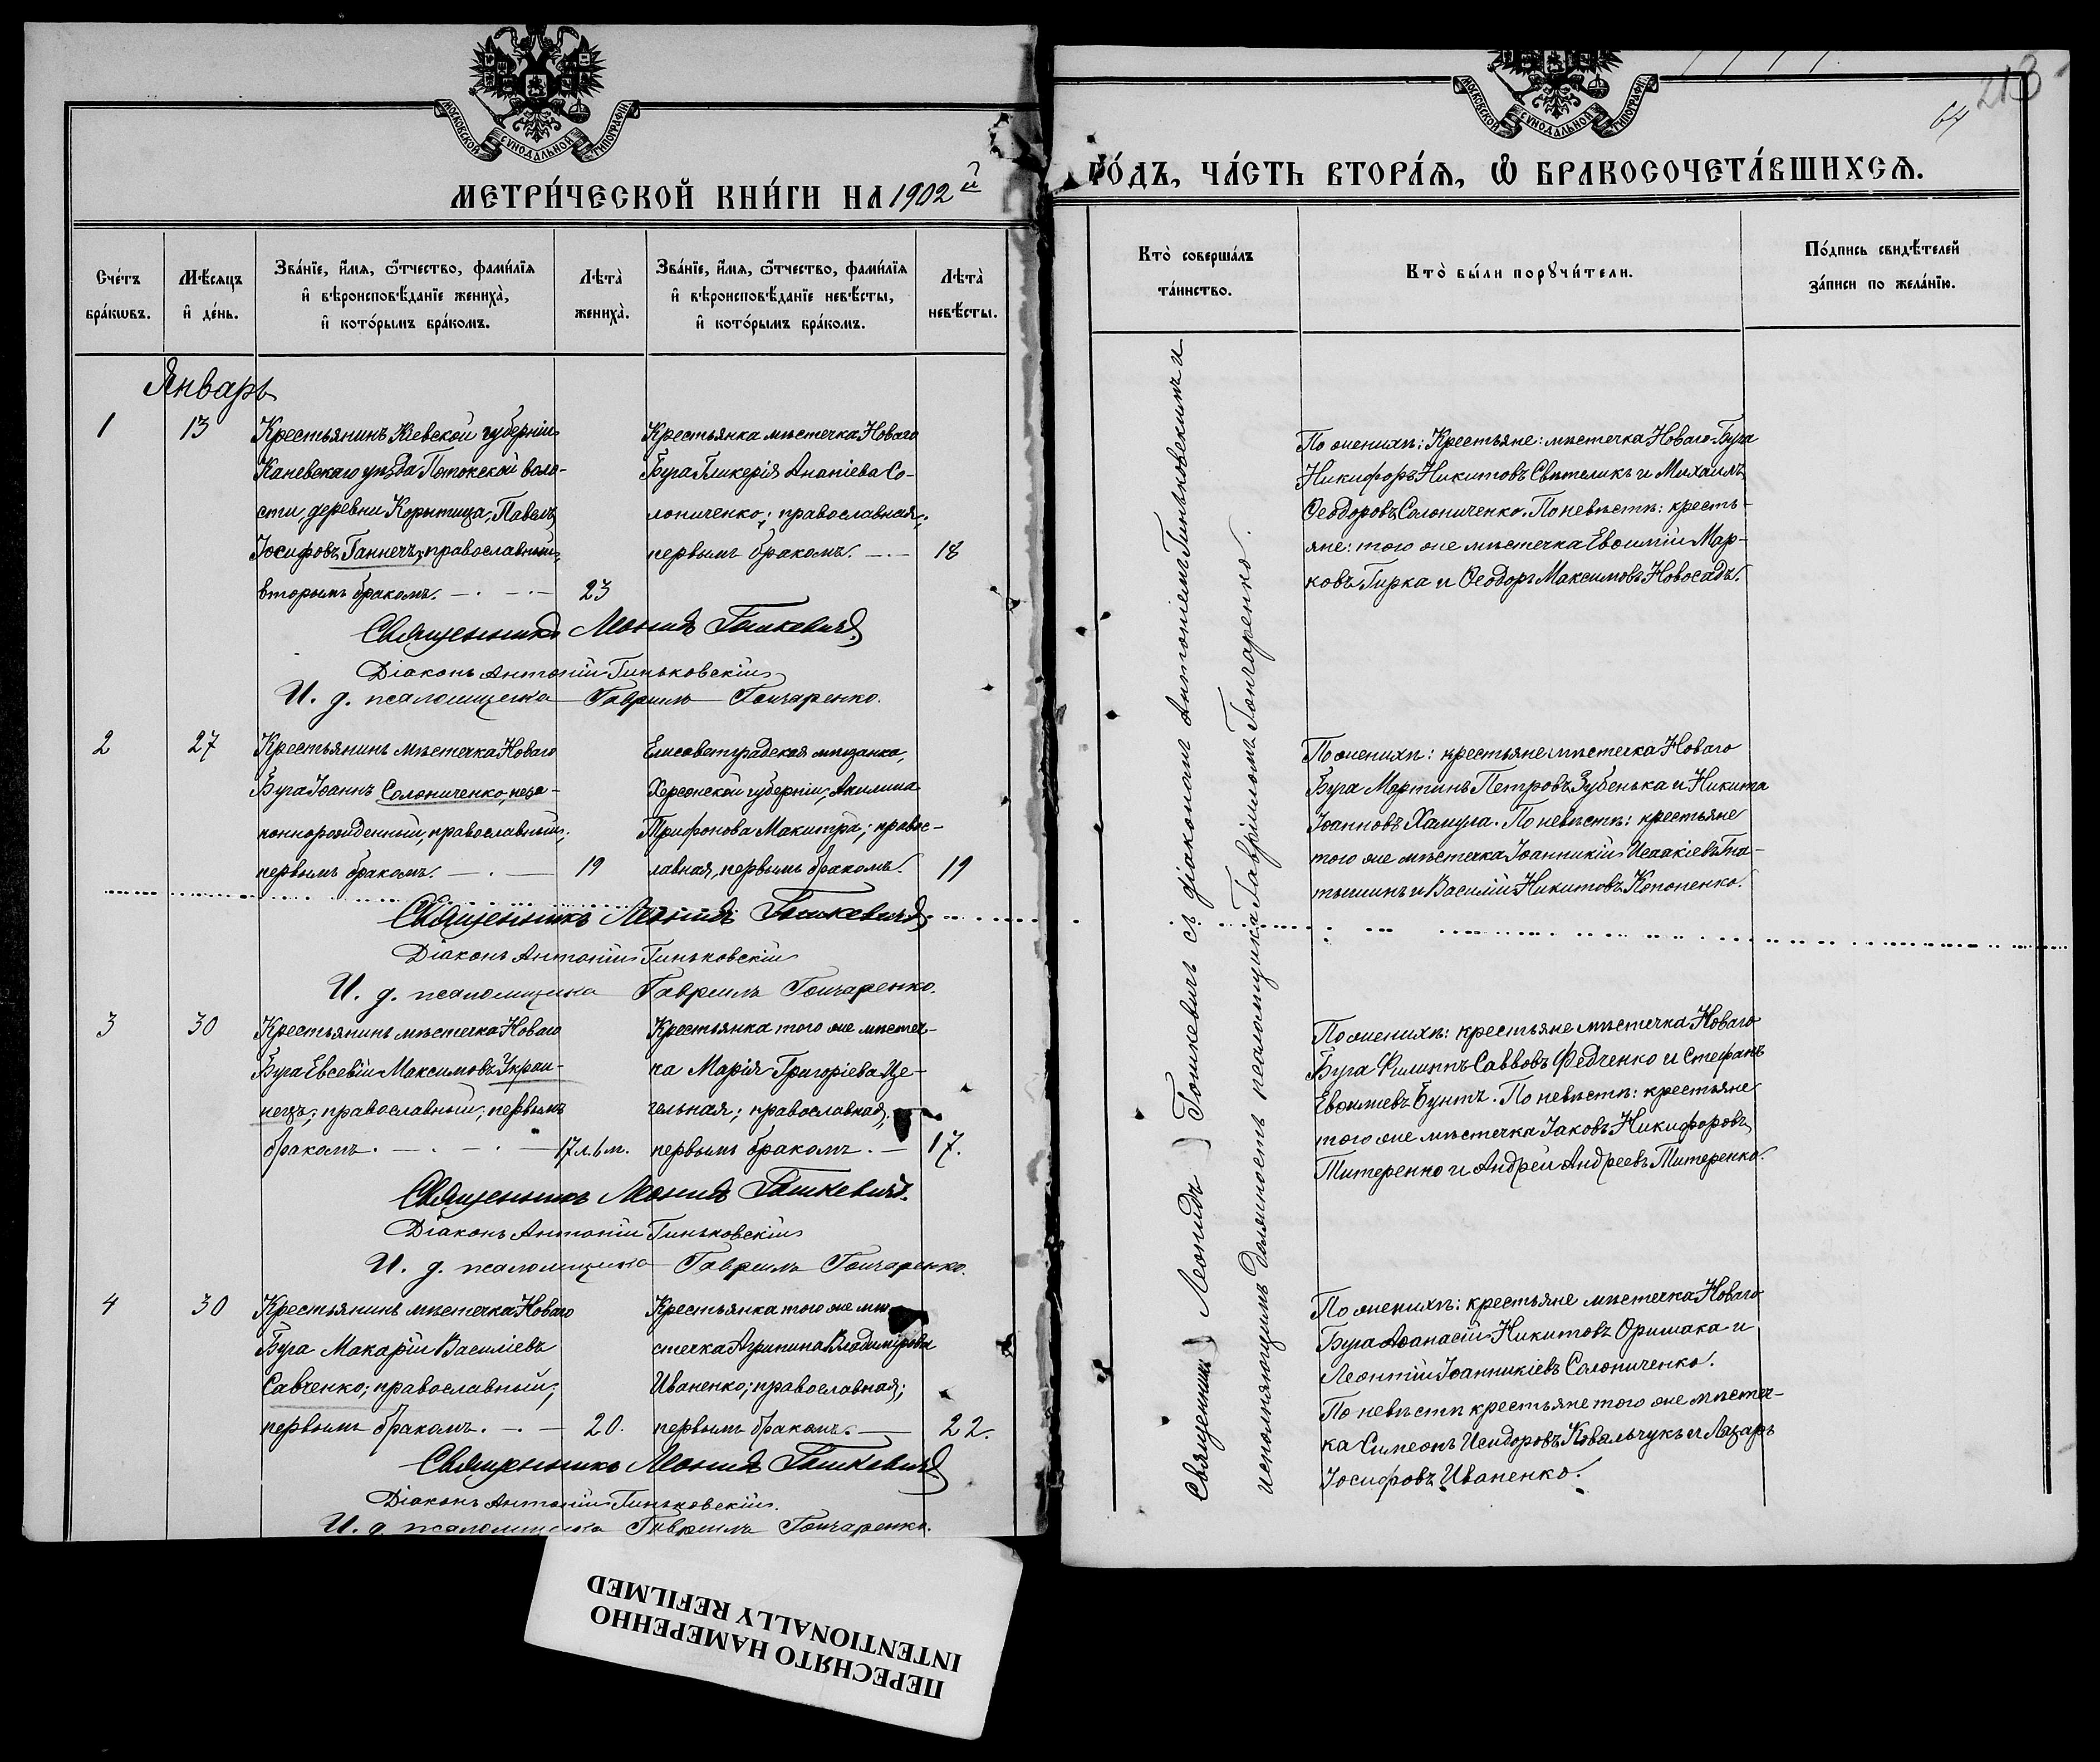 МОСКОВСКОЙ СѴНОДАЛЬНОЙ ТИПОГРАФІИ
МЕТРИ́ЧЕСКОЙ КНИ́ГИ НА 1902й
Сче́тъ бра́кѡвъ.
Мѣ́сяцъ и҆ де́нь.
Зва́нїе, и҆́мѧ, ѻ҆́тчество, фами́лїѧ
и҆ вѣроисповѣ́данїе жениха̀,
и҆ кото́рымъ бра́комъ.
Лѣта̀ жениха̀.
Зва́нїе, и҆́мѧ, ѻ҆́тчество, фами́лїѧ
и҆ вѣроисповѣ́данїе невѣ́сты,
и҆ кото́рымъ бра́комъ.
Лѣта̀ невѣ́сты.
Январь
1
13
Крестьянинъ Кіевской губерніи
Каневскаго уѣзда Потокской воло-
сти, деревни Корытища, Павелъ
Іосифовъ Ганнечъ; православный;
вторымъ бракомъ.
23
Крестьянка мѣстечка Новаго
Буга Гликерія Ананіева Со-
лониченко; православная;
первымъ бракомъ.
18
Священникъ Леонидъ Гошкевичъ
Діаконъ Антоній Гиньковскій
И. д. псаломщика Гавриилъ Гончаренко.
2
27
Крестьянинъ мѣстечка Новаго
Буга Іоаннъ Солониченко, неза-
коннорожденный, православный;
первымъ бракомъ.
19
Елисаветградская мѣщанка,
Херсонской губерніи, Акилина
Трифонова Макитра; правос-
лавная, первымъ бракомъ.
19
Священникъ Леонидъ Гошкевичъ
Діаконъ Антоній Гиньковскій
И. д. псаломщика Гавриилъ Гончаренко.
3
30
Крестьянинъ мѣстечка Новаго
Буга Евсевій Максимовъ Украи-
нецъ; православный; первымъ
бракомъ.
17 л. 6 м.
Крестьянка того же мѣстеч-
ка Марія Григоріева Це-
гельная; православная;
первымъ бракомъ.
17.
Священникъ Леонидъ Гошкевичъ.
Діаконъ Антоній Гиньковскій
И. д. псаломщика Гавриилъ Гончаренко.
4
30
Крестьянинъ мѣстечка Новаго
Буга Макарій Василіевъ
Савченко; православный;
первымъ бракомъ.
20.
Крестьянка того же мѣ-
стечка Агрипина Владимірова
Иваненко; православная;
первымъ бракомъ.
22.
Священникъ Леонидъ Гошкевичъ
Діаконъ Антоній Гиньковскій.
И. д. псаломщика Гавриилъ Гончаренко.
МОСКОВСКОЙ СѴНОДАЛЬНОЙ ТИПОГРАФІИ
213
64
ГО́ДЪ, ЧА́СТЬ ВТОРА́Ѧ, Ѡ҆ БРАКОСОЧЕТА́ВШИХСѦ.
Кто̀ соверша́лъ
та́инство.
Кто̀ бы́ли порꙋчи́тели.
По́дпись свидѣ́телей
за́писи по жела́нїю.
Священникъ Леонидъ Гошкевичъ съ діакономъ Антоніемъ Гиньковскимъ и
исполняющимъ должность псаломщика Гавріиломъ Гончаренко.
По женихѣ: Крестьяне: мѣстечка Новаго-Буга
Никифоръ Никитовъ Свѣтеликъ и Михаилъ
Ѳеодоровъ Солониченко. По невѣстѣ: кресть-
яне: того же мѣстечка Евѳимій Мар-
ковъ Гирка и Ѳеодоръ Максимовъ Новосадъ.
По женихѣ: крестьяне мѣстечка Новаго
Буга Мартинъ Петровъ Зубенька и Никита
Іоанновъ Хамула. По невѣстѣ: крестьяне
того же мѣстечка Іоанникій Исаакіевъ Гна-
тышинъ и Василій Никитовъ Кононенко.
По женихѣ: крестьяне мѣстечка Новаго
Буга Филиппъ Саввовъ Федченко и Стефанъ
Евѳиміевъ Бунтъ. По невѣстѣ: крестьяне
того же мѣстечка Іаковъ Никифоровъ
Титеренко и Андрей Андреевъ Титеренко.
По женихѣ: крестьяне мѣстечка Новаго
Буга Аѳанасій Никитовъ Оришака и
Леонтій Іоанникіевъ Солониченко.
По невѣстѣ крестьяне того же мѣстеч-
ка Симеонъ Исидоровъ Ковальчукъ и Лазарь
Іосифовъ Иваненко.
ПЕРЕСНЯТО НАМЕРЕННО
INTENTIONALLY REFILMED